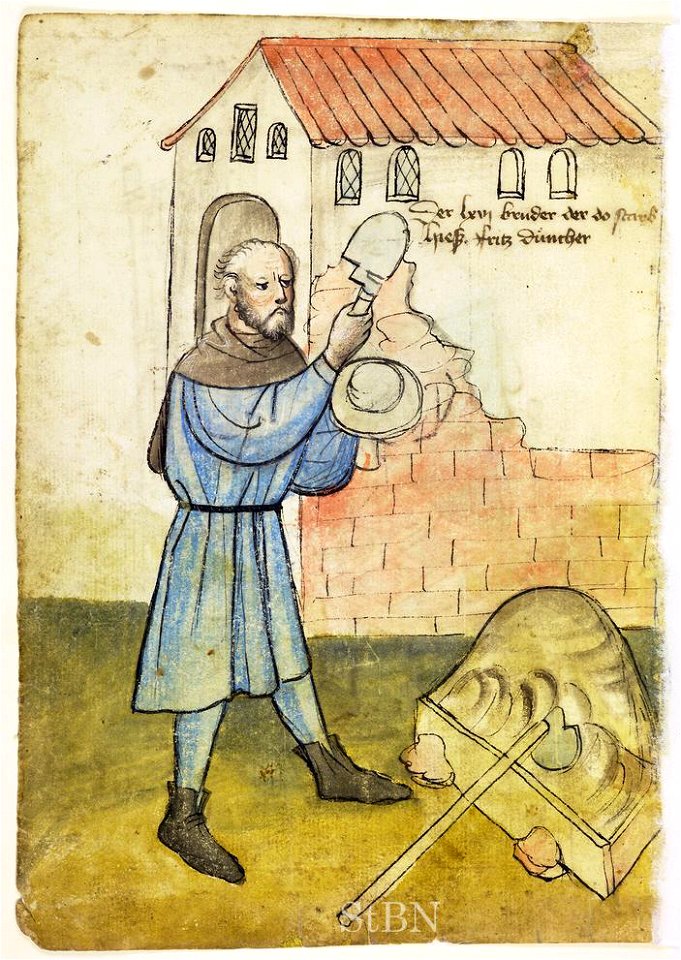 Der lxvi bruder der do starb
hieß. fritz dünther
StBN